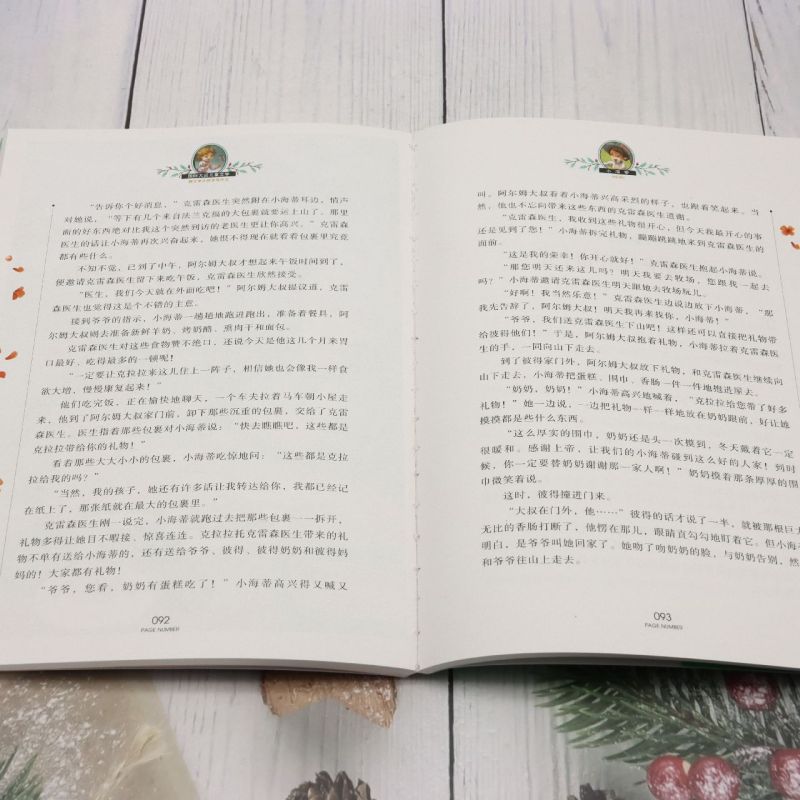 “告诉你个好消息，”克雷森医生突然附在小海蒂耳边，悄声
对她说，“等下有几个来自法兰克福的大包裹就要运上山了。那里
面的好东西绝对比我这个突然到访的老医生更让你高兴。”克雷森
医生的话让小海蒂再次兴奋起来，她恨不得现在就看看包裹里究竟
都有些什么。
不知不觉，已到了中午，阿尔姆大叔才想起来午饭时间到了，
便邀请克雷森医生留下来吃午饭，克雷森医生欣然接受。
“医生，我们今天就在外面吃吧！”阿尔姆大叔提议道，克雷
森医生也觉得这是个不错的主意。
接到爷爷的指示，小海蒂一趟趟地跑进跑出，准备着餐具，阿
尔姆大叔则去准备新鲜羊奶、烤奶酪、熏肉干和面包。
克雷森医生对这些食物赞不绝口，还说今天是他这几个月来胃
口最好、吃得最多的一顿呢！
“一定要让克拉拉来这儿住上一阵子，相信她也会像我一样食
欲大增，慢慢康复起来！”
他们吃完饭，正在愉快地聊天，一个车夫拉着马车朝小屋走
来，他到了阿尔姆大叔家门前，卸下那些沉重的包裹，交给了克雷
森医生。医生指着那些包裹对小海蒂说：“快去瞧瞧吧，这些都是
克拉拉带给你的礼物！”
看着那些大大小小的包裹，小海蒂吃惊地问：“这些都是克拉
拉给我的吗？”
“当然，我的孩子，她还有许多话让我转达给你，我都已经记
在纸上了，那张纸就在最大的包裹里。”
克雷森医生刚一说完，小海蒂就跑过去把那些包裹一一拆开，
礼物多得让她目不暇接、惊喜连连。克拉拉托克雷森医生带来的礼
物不单有送给小海蒂的，还有送给爷爷、彼得、彼得奶奶和彼得妈
妈的！大家都有礼物！
“爷爷，您看，奶奶有蛋糕吃了！”小海蒂高兴得又喊又
092
PAGE NUMBER
小海蒂
叫。阿尔姆大叔看着小海蒂兴高采烈的样子，也跟着笑起来。当
然，他也不忘向带来这些东西的克雷森医生道谢。
“克雷森医生，我收到这些礼物很开心，但今天我最开心的事
还是见到了您！”小海蒂拆完礼物，蹦蹦跳跳地来到克雷森医生的
面前。
“这是我的荣幸！你开心就好！”克雷森医生抱起小海蒂说。
“那您明天还来这儿吗？明天我要去牧场，您跟我一起去
吗？”小海蒂邀请克雷森医生明天跟她去牧场玩儿。
“好啊！我当然乐意！”克雷森医生边说边放下小海蒂，“那
我先告辞了，阿尔姆大叔！明天我再来找你，小海蒂！”
“爷爷，我们送克雷森医生下山吧！这样还可以直接把礼物带
给彼得他们！”于是，阿尔姆大叔抱着礼物，小海蒂拉着克雷森医
生的手，一同向山下走去。
到了彼得家门外，阿尔姆大叔放下礼物，和克雷森医生继续向
山下走去，小海蒂把蛋糕、围巾、香肠一件一件地抱进屋去。
“奶奶，奶奶！”小海蒂高兴地喊着，“克拉拉给您带了好多
礼物！”她一边说，一边把礼物一样一样地放在奶奶跟前，好让她
摸摸都是些什么东西。
“这么厚实的围巾，奶奶还是头一次摸到，冬天戴着它一定
很暖和。感谢上帝，让我们的小海蒂碰到这么好的人家！到时
候，你一定要替奶奶谢谢那一家人啊！”奶奶摸着那条厚厚的围
巾微笑着说。
这时，彼得撞进门来。
“大叔在门外，他……”彼得的话才说了一半，就被那根巨大
无比的香肠打断了，他愣在那儿，眼睛直勾勾地盯着它。但小海
明白，是爷爷叫她回家了。她吻了吻奶奶的脸，与奶奶告别，然
和爷爷往山上走去。
093
PAGE NUMBER